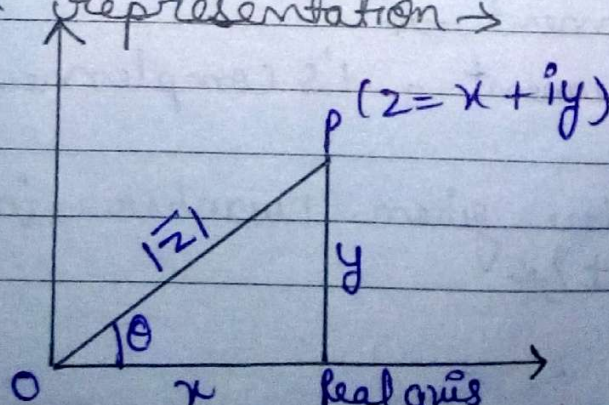 representation →
P (z = x + iy)
|z|
y
θ
O x Real axis